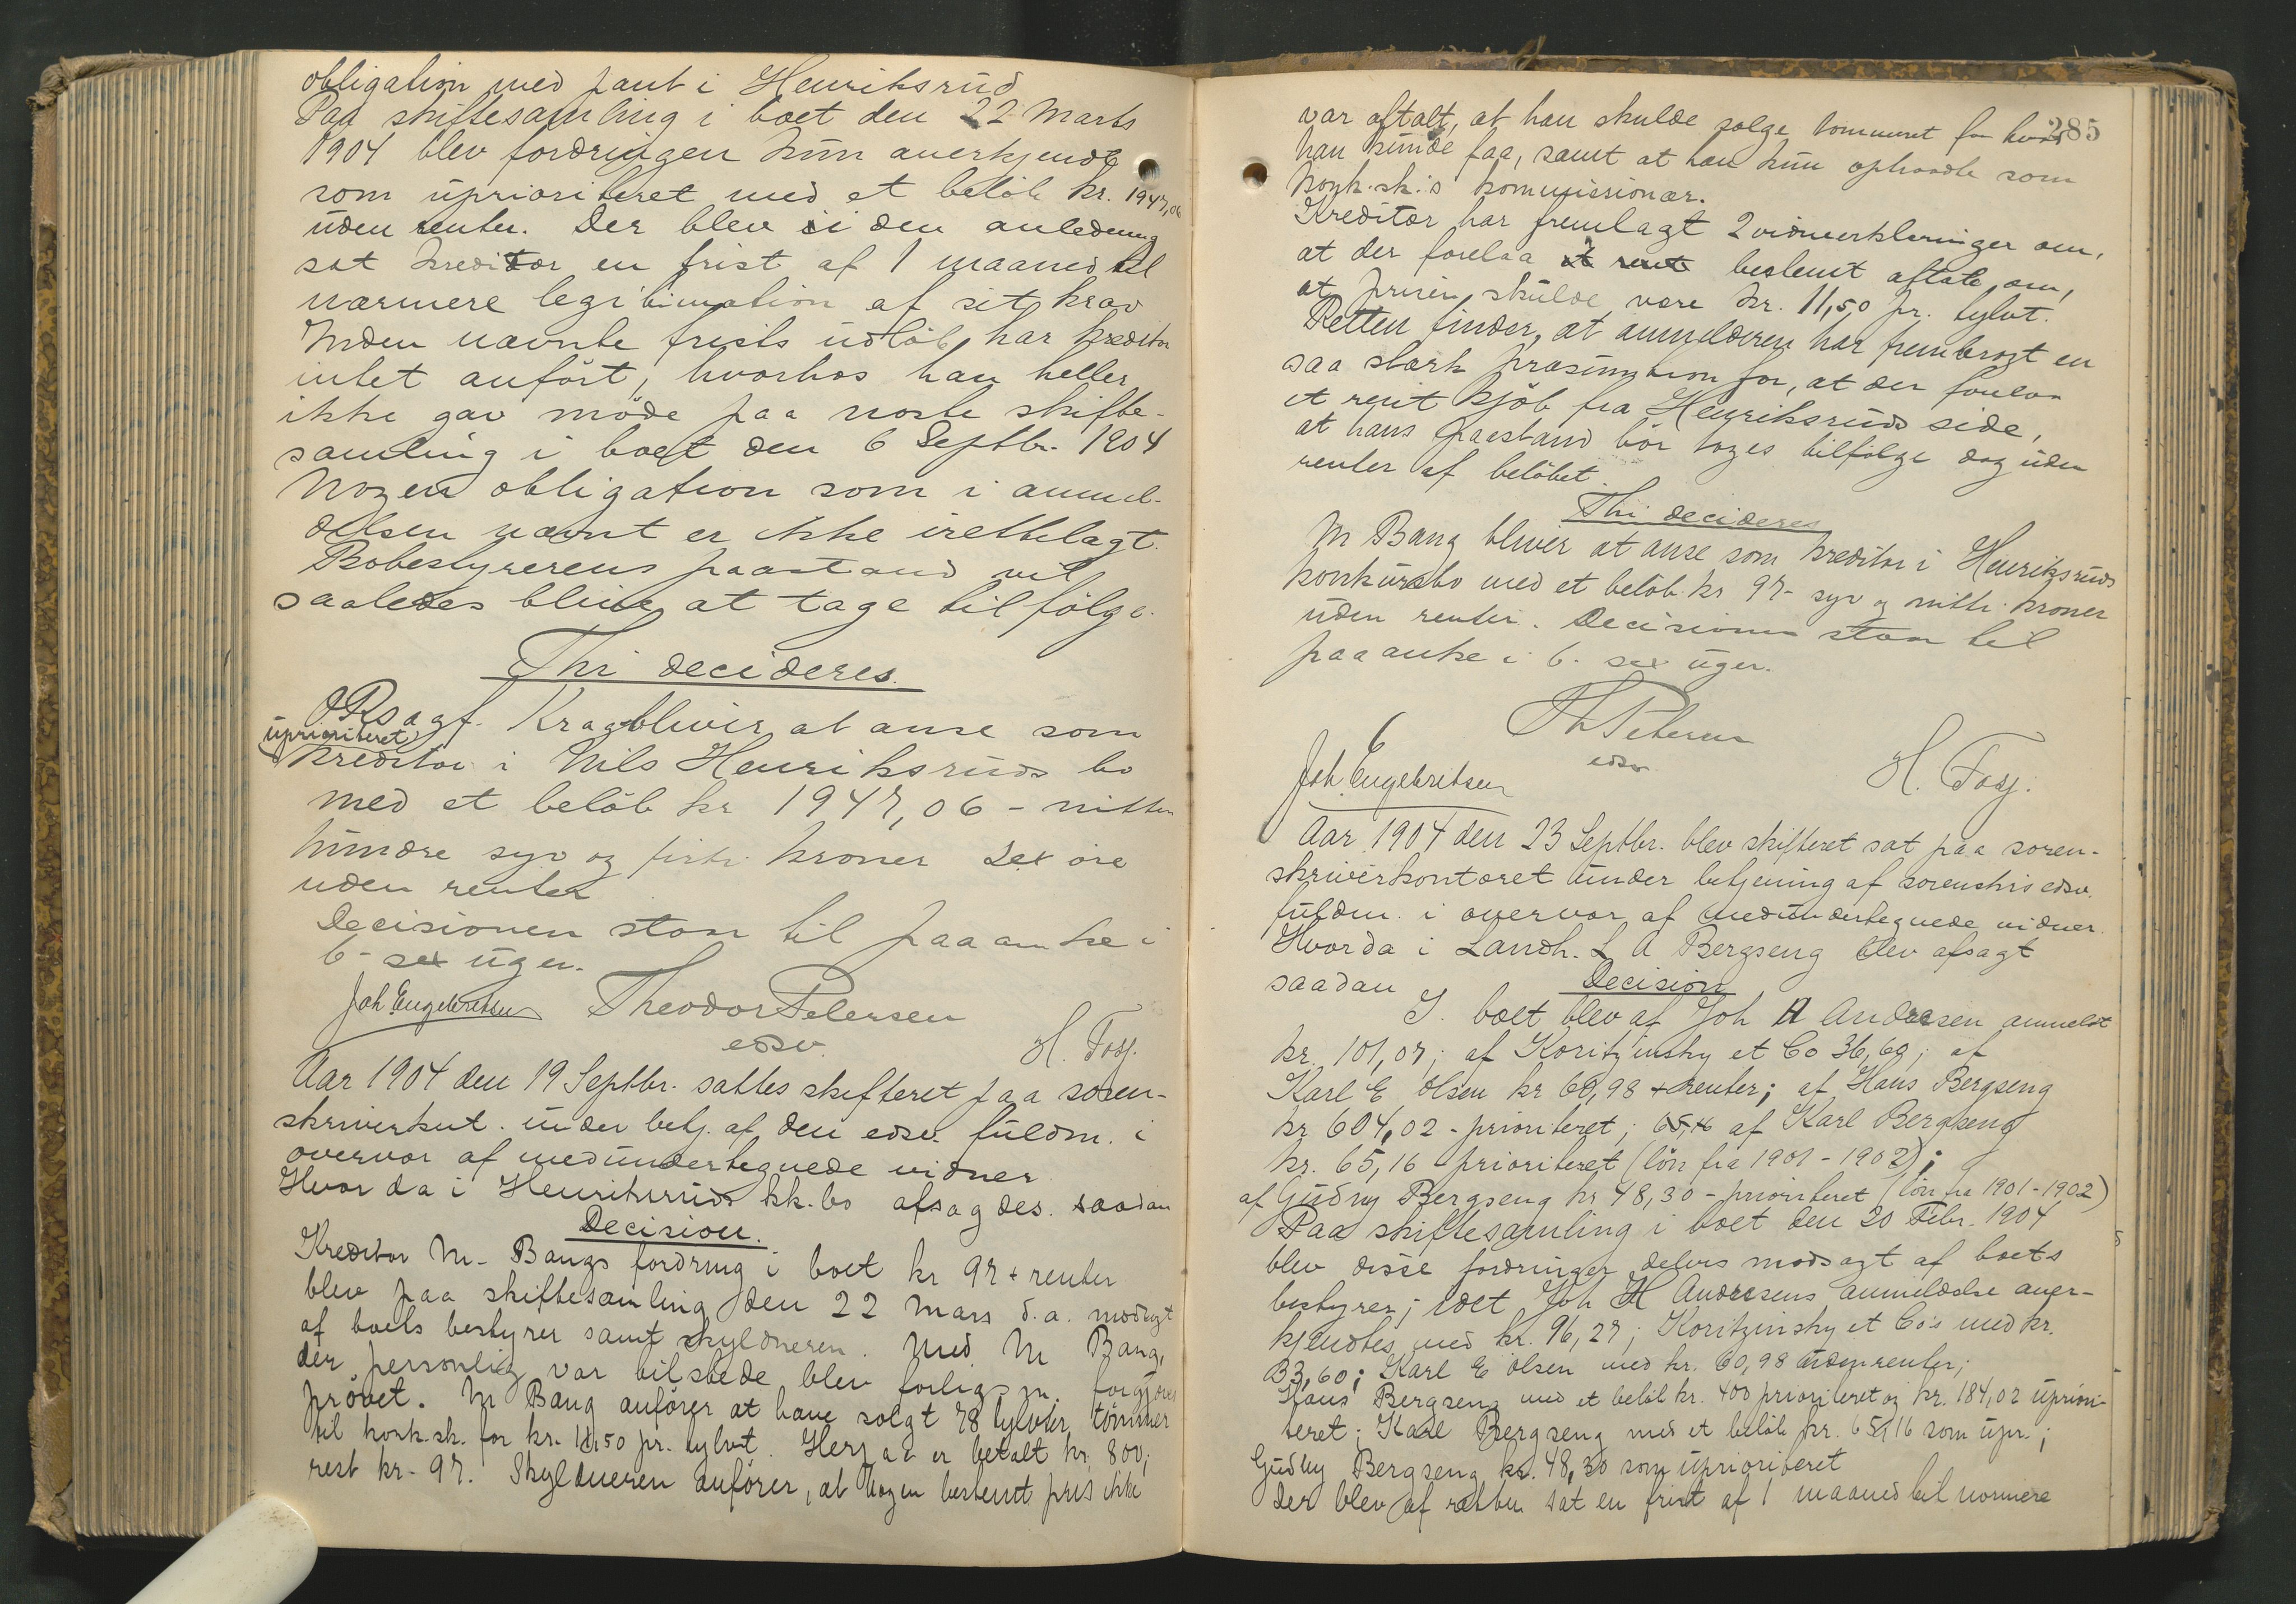 obligation med pant i Henriksrud
Paa skiftesamling i boet den 22 Marts
1904 blev fordringen kun anerkjendt
som uprioriteret med et beløb kr. 1947,06
uden renter. Der blev i den anledning
sat kreditor en frist af 1 maaned til
nærmere legitimation af sit krav
Inden nævnte frists udløb har kreditor
intet anført, hvorhos han heller
ikke gav møde paa næste skifte-
samling i boet den 6 Septbr. 1904
Nogen obligation som i anmel-
delsen nævnt er ikke irettelagt.
Bobestyrerens paastand vil
saaledes blive at tage tilfølge.
Thi decideres.
ORsagf. Krag bliver at anse som
uprioriteret
kreditor i Nils Henriksruds bo
med et beløb kr 1947,06 - nitten
hundre syv og firti kroner sex øre
uden renter
Decisionen staar til paaanke i
6 - sex uger.
Joh. Engebretsen Theodor Petersen
edsv. H. Fosj.
Aar 1904 den 19 Septbr. sattes skifteret paa soren-
skriverknt. under betj. af den edsv. fuldm. i
overvær af medundertegnede vidner
Hvor da i Henriksruds kk.bo afsagdes saadan
Decision.
Kreditor M. Bangs fordring i boet kr 97 + renter
blev paa skiftesamling den 22 mars d.a. modsagt
af boets bestyrer samt skyldneren. Med M Bang,
der personlig var tilstede blev forligsm. forgjæves
prøvet. M Bang anfører at have solgt 78 tylvter tømmer
til konk.sk. for kr. 11,50 pr. tylvt. Herpaa er betalt kr. 800;
rest kr. 97. Skyldneren anfører, at nogen bestemt pris ikke
285
var aftalt, at han skulde sælge tømmeret for hvad
han kunde faa, samt at han kun optraadte som
konk.sk.'s kommissionær.
Kreditor har fremlagt 2 vidneerklæringer om,
at der forelaa bestemt aftale om,
at prisen skulde være kr. 11,50 pr. tylvt.
Retten finder, at anmelderen har frembragt en
saa stærk præsumtion for, at der forelaa
et rent kjøb fra Henriksruds side,
at hans paastand bør tages tilfølge dog uden
renter af beløbet.
Thi decideres
M Bang bliver at anse som kreditor i Henriksruds
konkursbo med et beløb kr 97 - syv og nitti kroner
uden renter. Decisionen staar til
paaanke i 6. sex uger.
Th Petersen
edsv.
Joh. Engebretsen H. Fosj.
Aar 1904 den 23 Septbr. blev skifteret sat paa soren-
skriverkontoret under betjening af sorenskris edsv.
fuldm. i overvær af medundertegnede vidner.
Hvorda i Landh. L A Bergseng blev afsagt
saadan Decision
I boet blev af Joh H Andresen anmeldt
kr. 101,07; af Koritzinsky et Co 36,60; af
Karl E Olsen kr 60,98 + renter; af Hans Bergseng
kr 604,02 - prioriteret; 65,16 af Karl Bergseng
kr. 65,16 - prioriteret (løn fra 1901 - 1902);
af Gudny Bergseng kr 48,30 - prioriteret (løn fra 1901-1902)
Paa skiftesamling i boet den 20 Febr. 1904
blev disse fordringer delvis modsagt af boets
bestyrer; idet Joh H Andresens anmeldelse aner-
kjendtes med kr. 96,27; Koritzinsky et Co's med kr.
33,60; Karl E Olsen med kr. 60,98 uden renter;
Hans Bergseng med et beløb kr. 400 prioriteret og kr. 184,02 upriori-
teret; Karl Bergseng med et beløb kr. 65,16 som upr.;
Gudny Bergseng kr. 48,30 som uprioriteret
Der blev af retten sat en frist af 1 maaned til nærmere